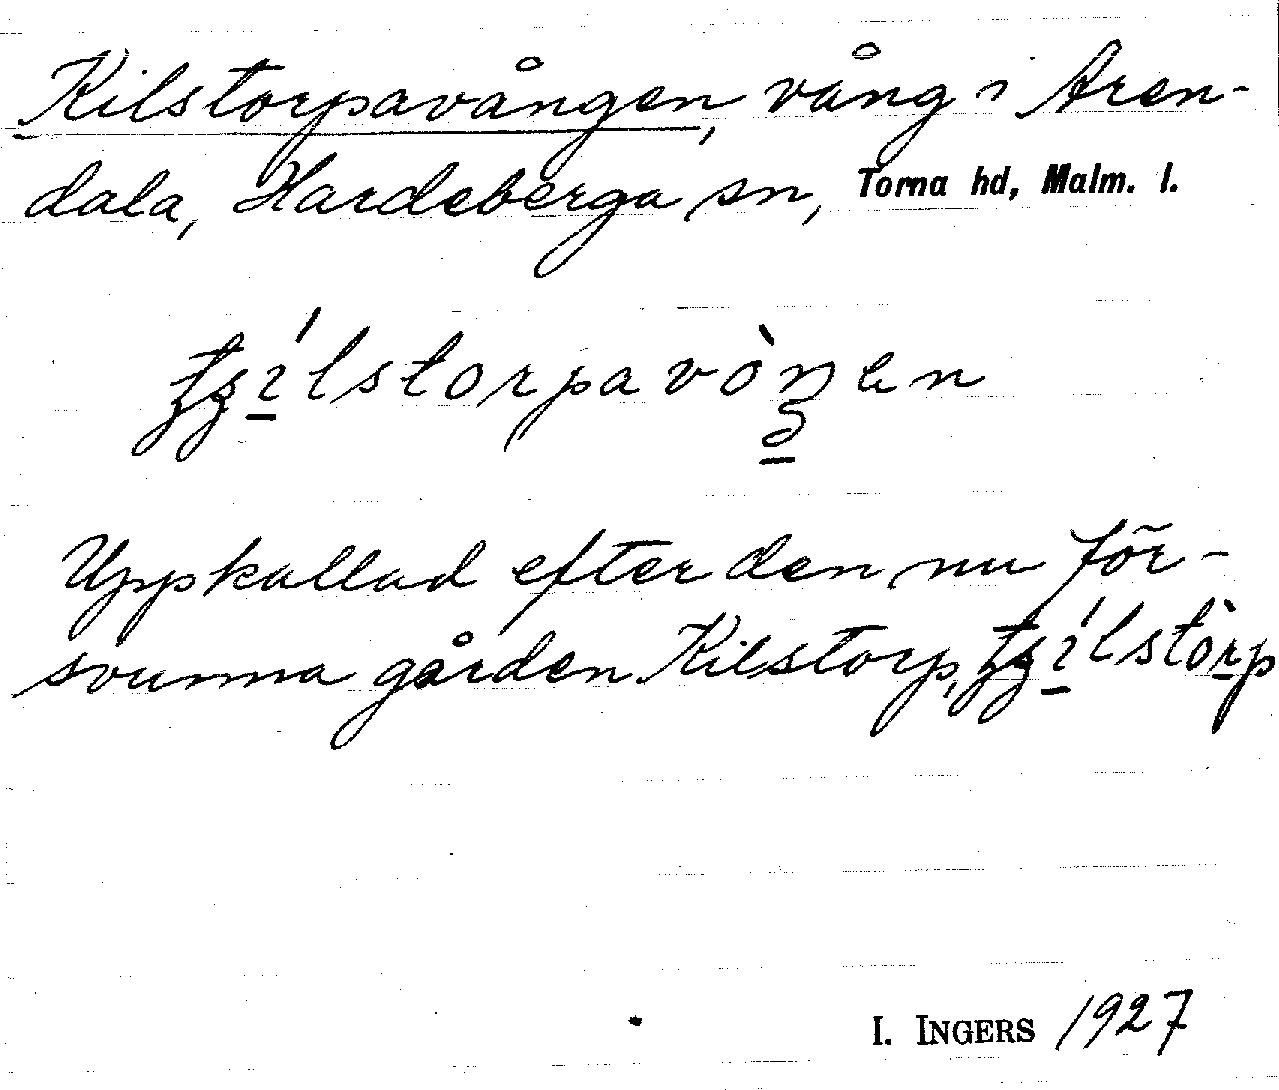 Kilstorpavången, vång i Aren-
dala, Hardeberga sn, Torna hd, Malm. l.
Uppkallad efter den nu för-
svunna gården Kilstorp,
I. INGERS 1927